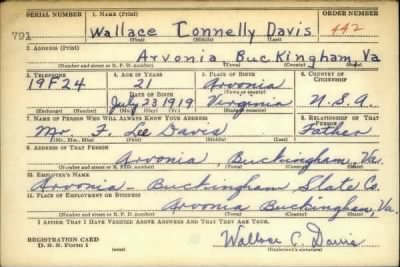 SERIAL NUMBER 1. NAME (Print) ORDER NUMBER
791 Wallace Connelly Davis 442
(First) (Middle) (Last)
2. ADDRESS (Print)
Arvonia Buckingham Va
(Number and street or R. F. D. number) (Town) (County) (State)
3. TELEPHONE 4. AGE IN YEARS 5. PLACE OF BIRTH 6. COUNTRY OF CITIZENSHIP
19F24 21 Arvonia
DATE OF BIRTH (Town or county)
July 23 1919 Virginia U.S.A.
(Exchange) (Number) (Mo.) (Day) (Yr.) (State or country)
7. NAME OF PERSON WHO WILL ALWAYS KNOW YOUR ADDRESS 8. RELATIONSHIP OF THAT PERSON
Mr F. Lee Davis Father
(Mr., Mrs., Miss) (First) (Middle) (Last)
9. ADDRESS OF THAT PERSON
Arvonia, Buckingham, Va.
(Number and street or R. F. D. number) (Town) (County) (State)
10. EMPLOYER'S NAME
Arvonia-Buckingham Slate Co.
11. PLACE OF EMPLOYMENT OR BUSINESS
Arvonia Buckingham, Va.
(Number and street or R. F. D. number) (Town) (County) (State)
I AFFIRM THAT I HAVE VERIFIED ABOVE ANSWERS AND THAT THEY ARE TRUE.
REGISTRATION CARD
D. S. S. Form 1 Wallace C. Davis
(Registrant's signature)